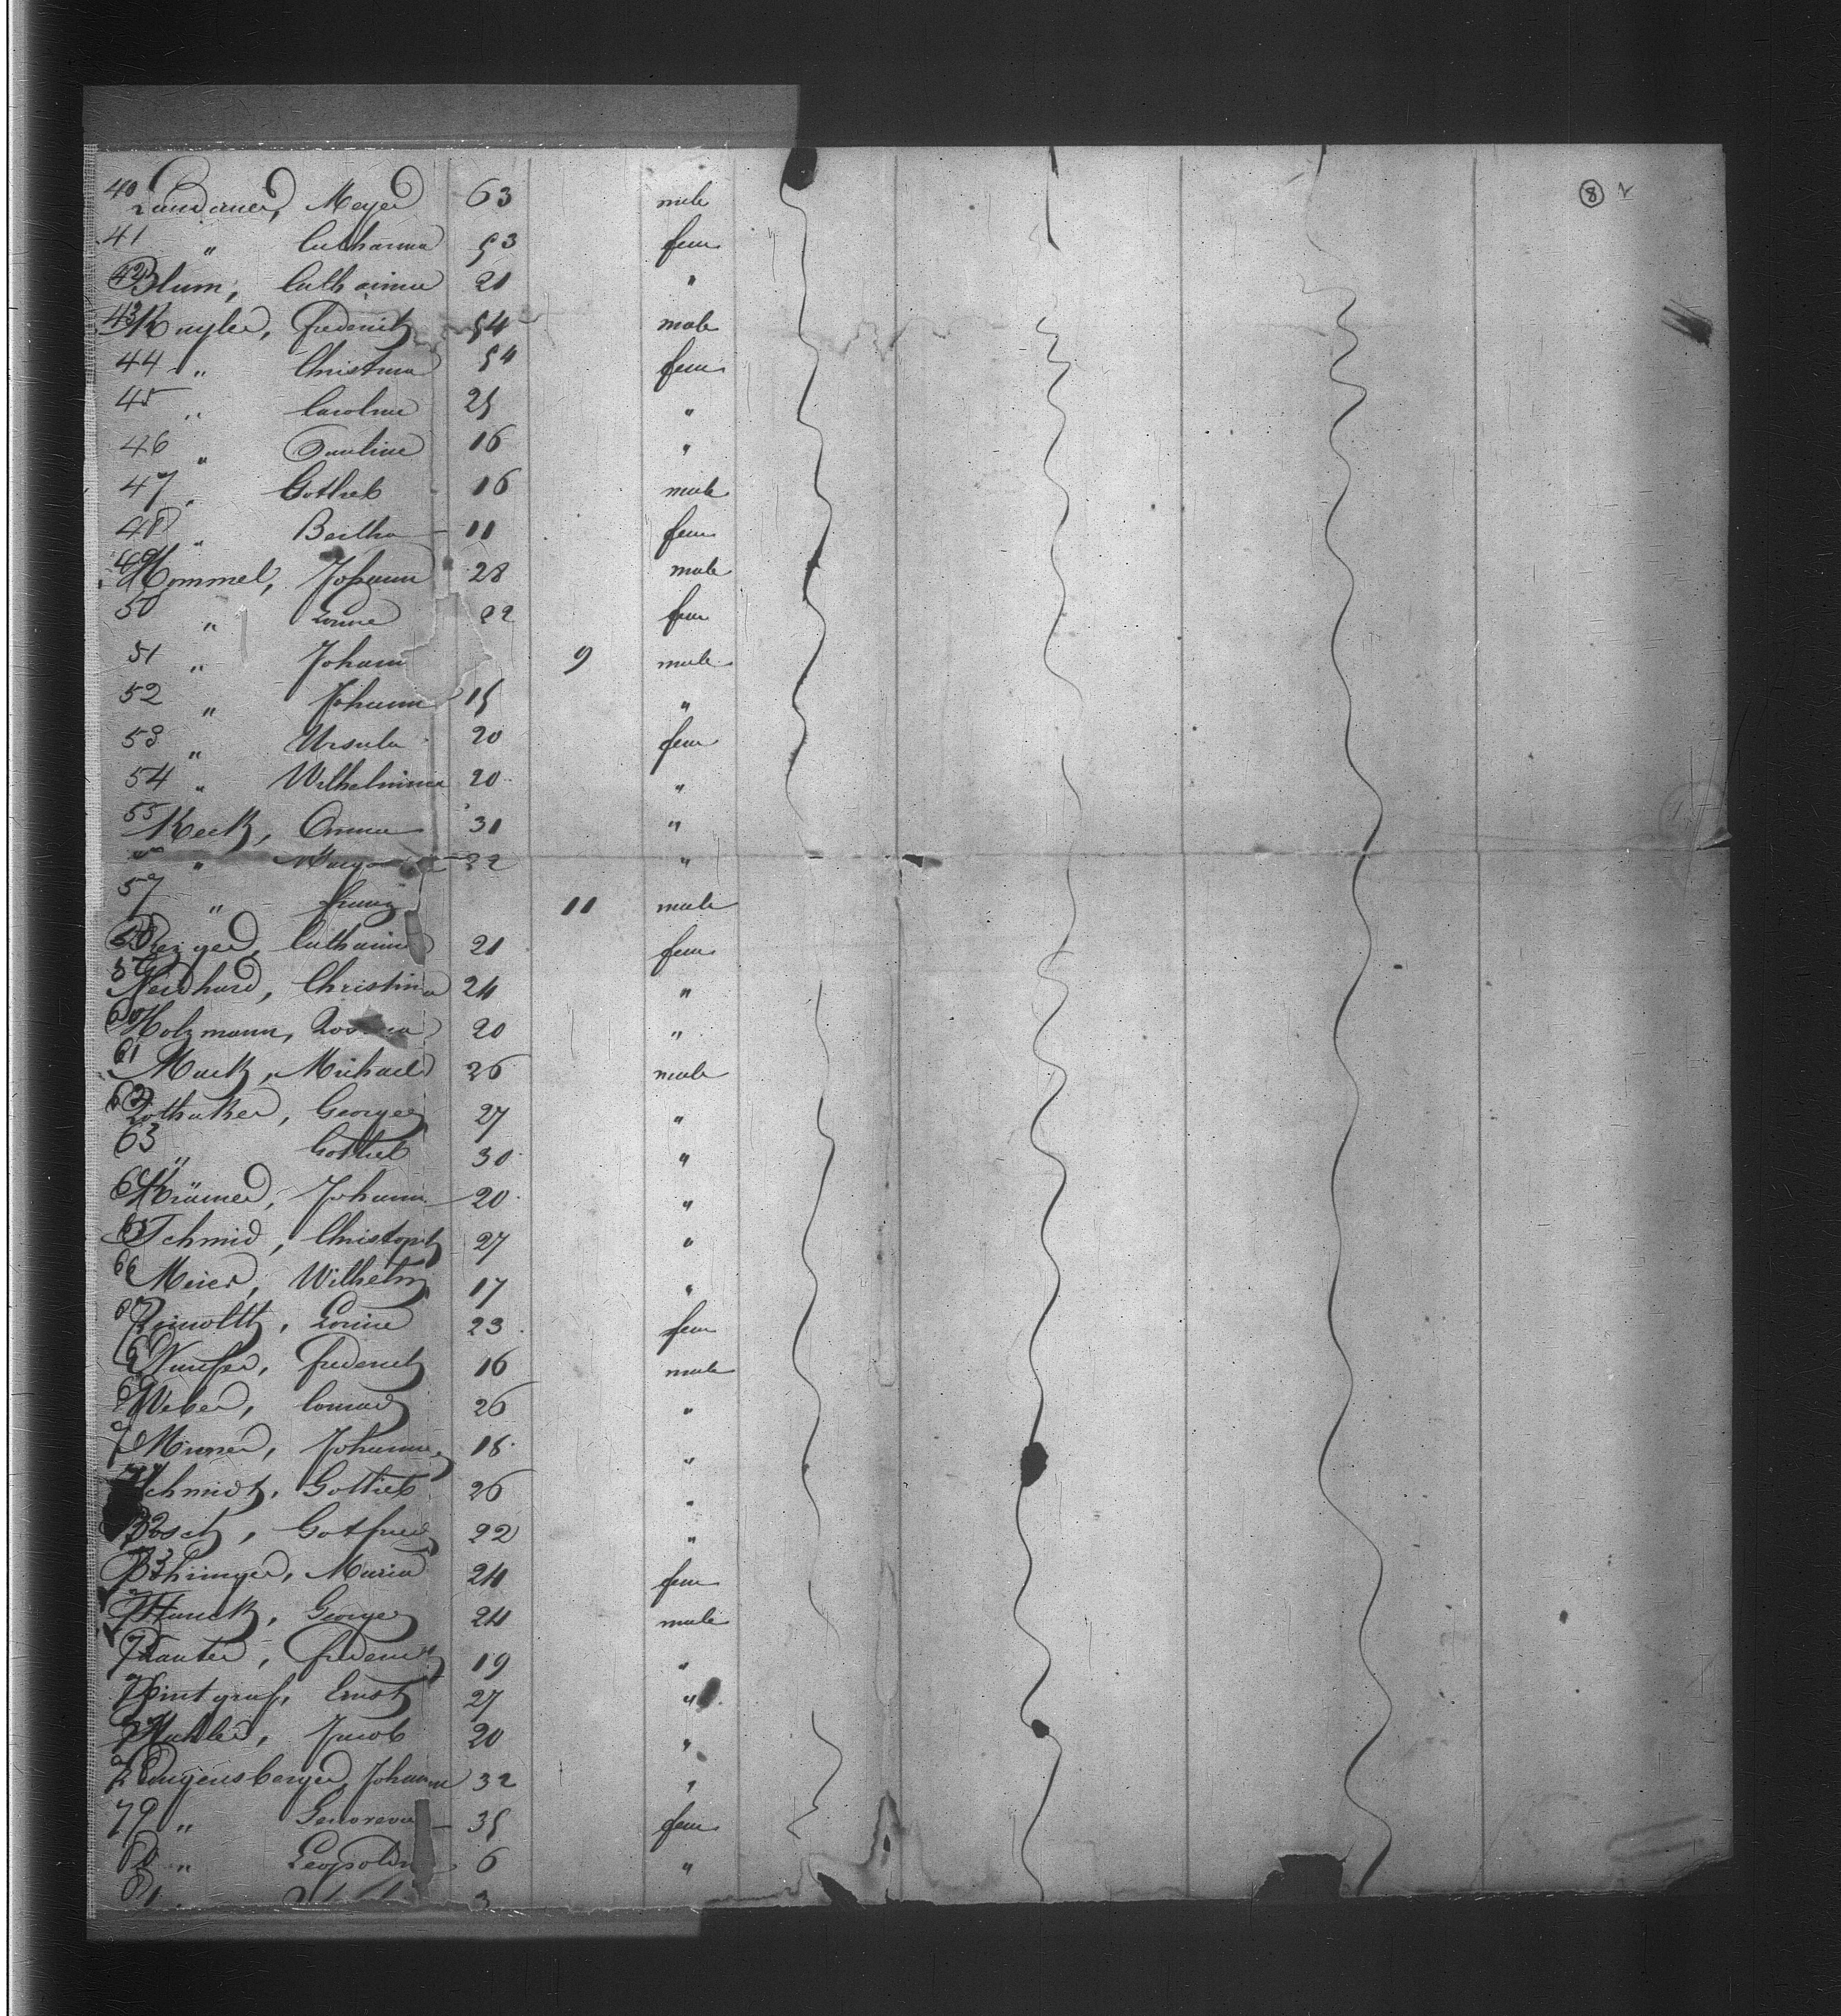 8
40 Landauer, Meyer 63 male
41 " Catharina 53 fem
42 Blum, Catharina 21 "
43 Kugler, Frederick 54 male
44 " Christina 54 fem
45 " Caroline 25 "
46 " Pauline 16 "
47 " Gotlieb 16 male
48 " Bertha 11 fem
49 Hommel, Johann 28 male
50 " Louise 22 fem
51 " Johann 9 male
52 " Johann 15 "
53 " Ursula 20 fem
54 " Wilhelmina 20 "
55 Keck, Anna 31 "
" 22 "
57 " Franz 11 male
58 Catharina 21 fem
59 Neidhard, Christina 24 "
60 Holzmann, 20 "
61 Mack, Michael 26 male
62 Rothaker, George 27 "
63 " Gottlieb 30 "
64 Krämer, Johann 20 "
65 Schmid, Christoph 27 "
66 Meier, Wilhelm 17 "
67 Louise 23 fem
Frederick 16 male
69 Weber, Conrad 26 "
Johannes 18 "
71 Schmidt, Gottlieb 26 "
72 Bosch, Gotfried 22 "
73 Maria 24 fem
George 24 male
Frederick 19 "
Ernst 27 "
Jacob 20 "
Johann 32 "
79 " Genoveva 35 fem
80 " Leopoldin 6 "
81 3